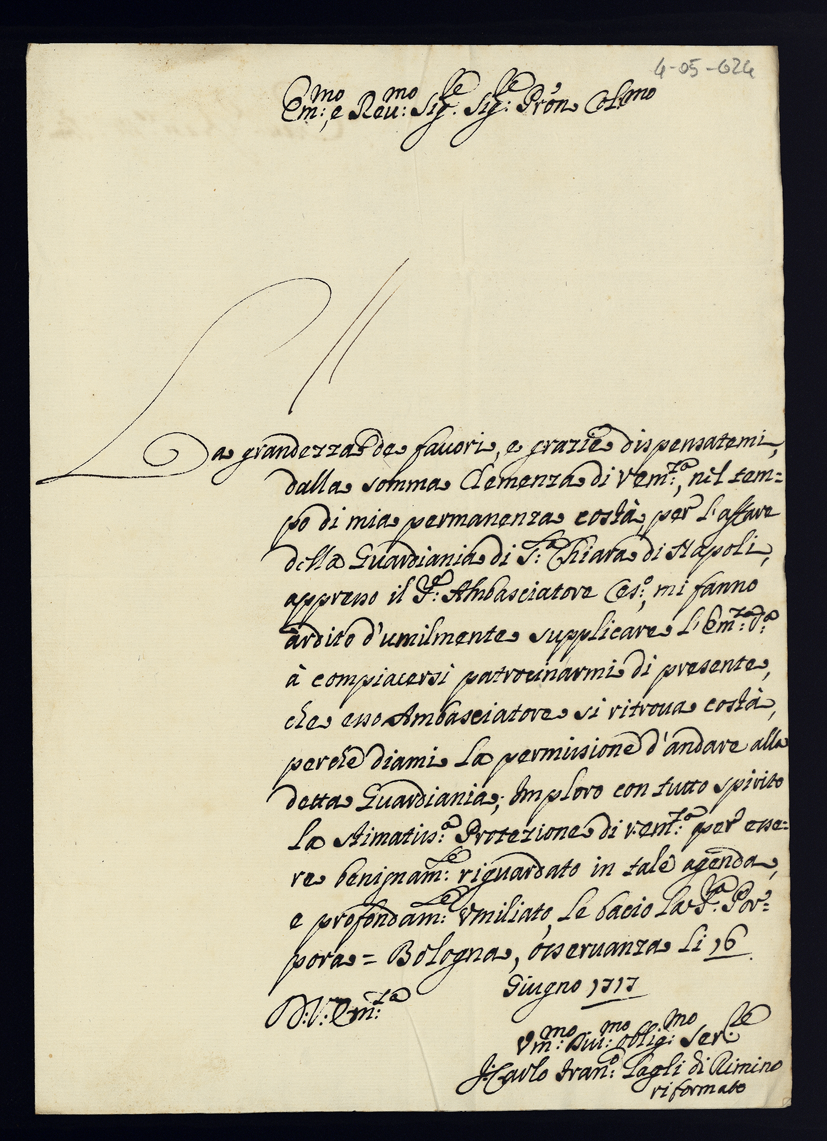 4-05-024
Em:mo, e Reu:mo Sig:re Sig:re Prõn Col:mo
La grandezza de fauori, e grazie dispensatemi,
dalla somma Clemenza di V.em:za, nel tem=
po di mia permanenza costà, per l'affare
della Guardiania di S:a Chiara di Napoli,
appresso il S:r Ambasciatore Ces:o, mi fanno
ardito d'umilmente supplicare l'Em:za V:a
à compiacersi patrocinarmi di presente,
che esso Ambasciatore si ritroua costà,
perche diami la permissione d'andare alla
detta Guardiania; Imploro con tutto spirito
la stimatiss:a Protezione di V.em:za per esse=
re benignam:te riguardato in tale agenda,
e profondam:te Vmiliato, le bacio la S:a Por=
pora = Bologna, osseruanza li 16
Giugno 1717
D: V: Em:za
Vm:mo Diu:mo oblig:mo Ser:re
f: Carlo Fran:o di Rimino
riformato